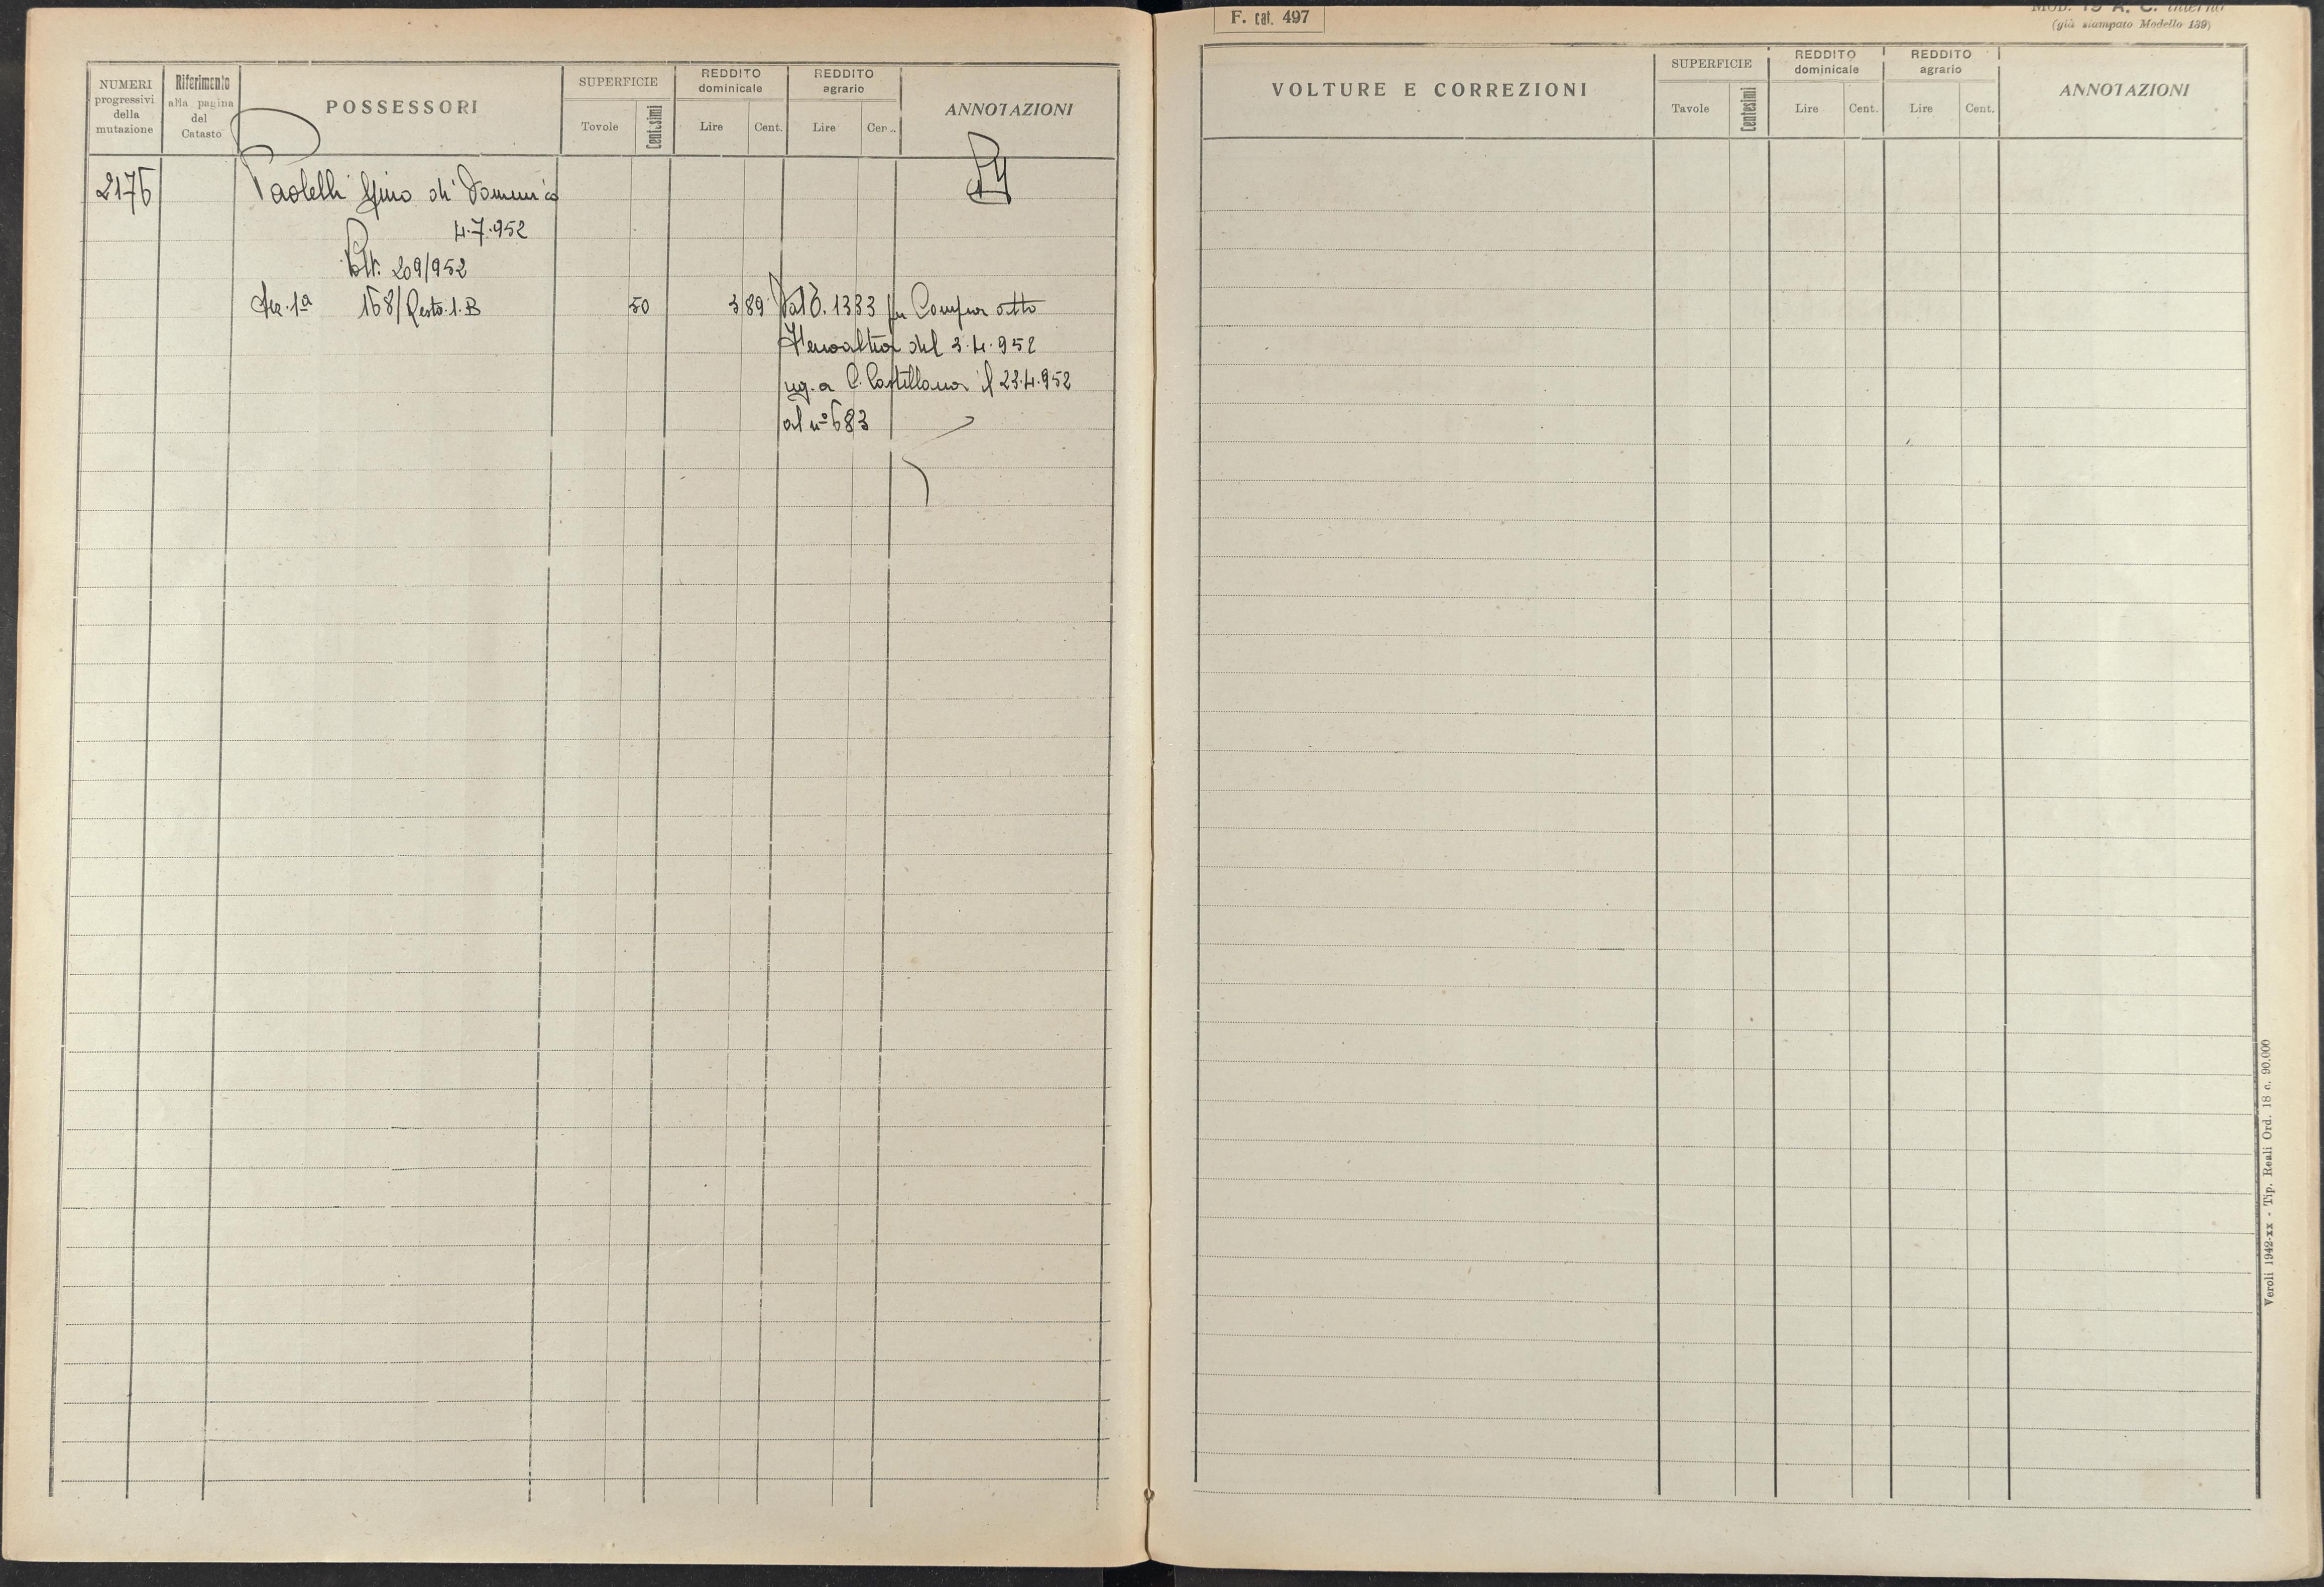 NUMERI progressivi della mutazione
Riferimento alla pagina del Catasto
POSSESSORI
SUPERFICIE
Tavole
Centesimi
REDDITO dominicale
Lire
Cent.
REDDITO agrario
Lire
Cen..
ANNOTAZIONI
2176
Paolelli Gino di Domenico
4.7.952
Volt. 209/952
Sez. 1ª 168/Resto.1.B 50 3 89 Dal C. 1333 per Compra atto
del 3.4.952
reg. a C. Castellana il 23.4.952
al nº 683
F. cat. 497
MOD. 19 A. C. interno
(già stampato Modello 139)
VOLTURE E CORREZIONI
SUPERFICIE
Tavole
Centesimi
REDDITO dominicale
Lire
Cent.
REDDITO agrario
Lire
Cent.
ANNOTAZIONI
Veroli 1942-xx - Tip. Reali Ord. 18 c. 90.000